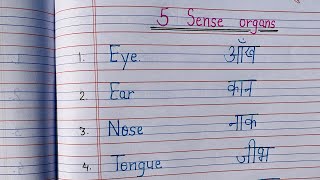 5 Sense organs
1. Eye. आँख
2. Ear कान
3. Nose नाक
4. Tongue जीभ